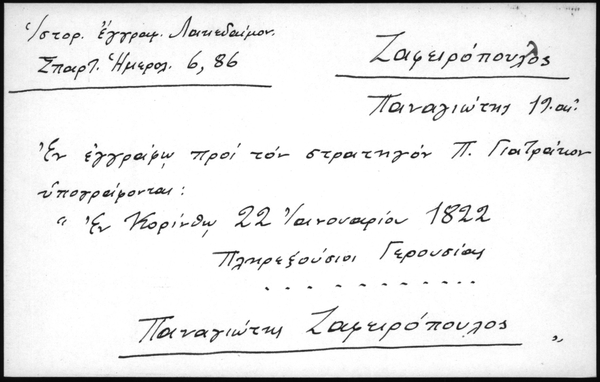 Ἱστορ. ἔγγραφ. Λακεδαίμον.
Σπαρτ. Ἡμερολ. 6, 86
Ζαφειρόπουλος
Παναγιώτης 19. αἰ.
Ἐν ἐγγράφῳ πρὸς τὸν στρατηγὸν Π. Γιατράκον
ὑπογράφονται:
" Ἐν Κορίνθῳ 22 Ἰανουαρίου 1822
Πληρεξούσιοι Γερουσίας
. . . . . . . . . . . .
Παναγιώτης Ζαφειρόπουλος "